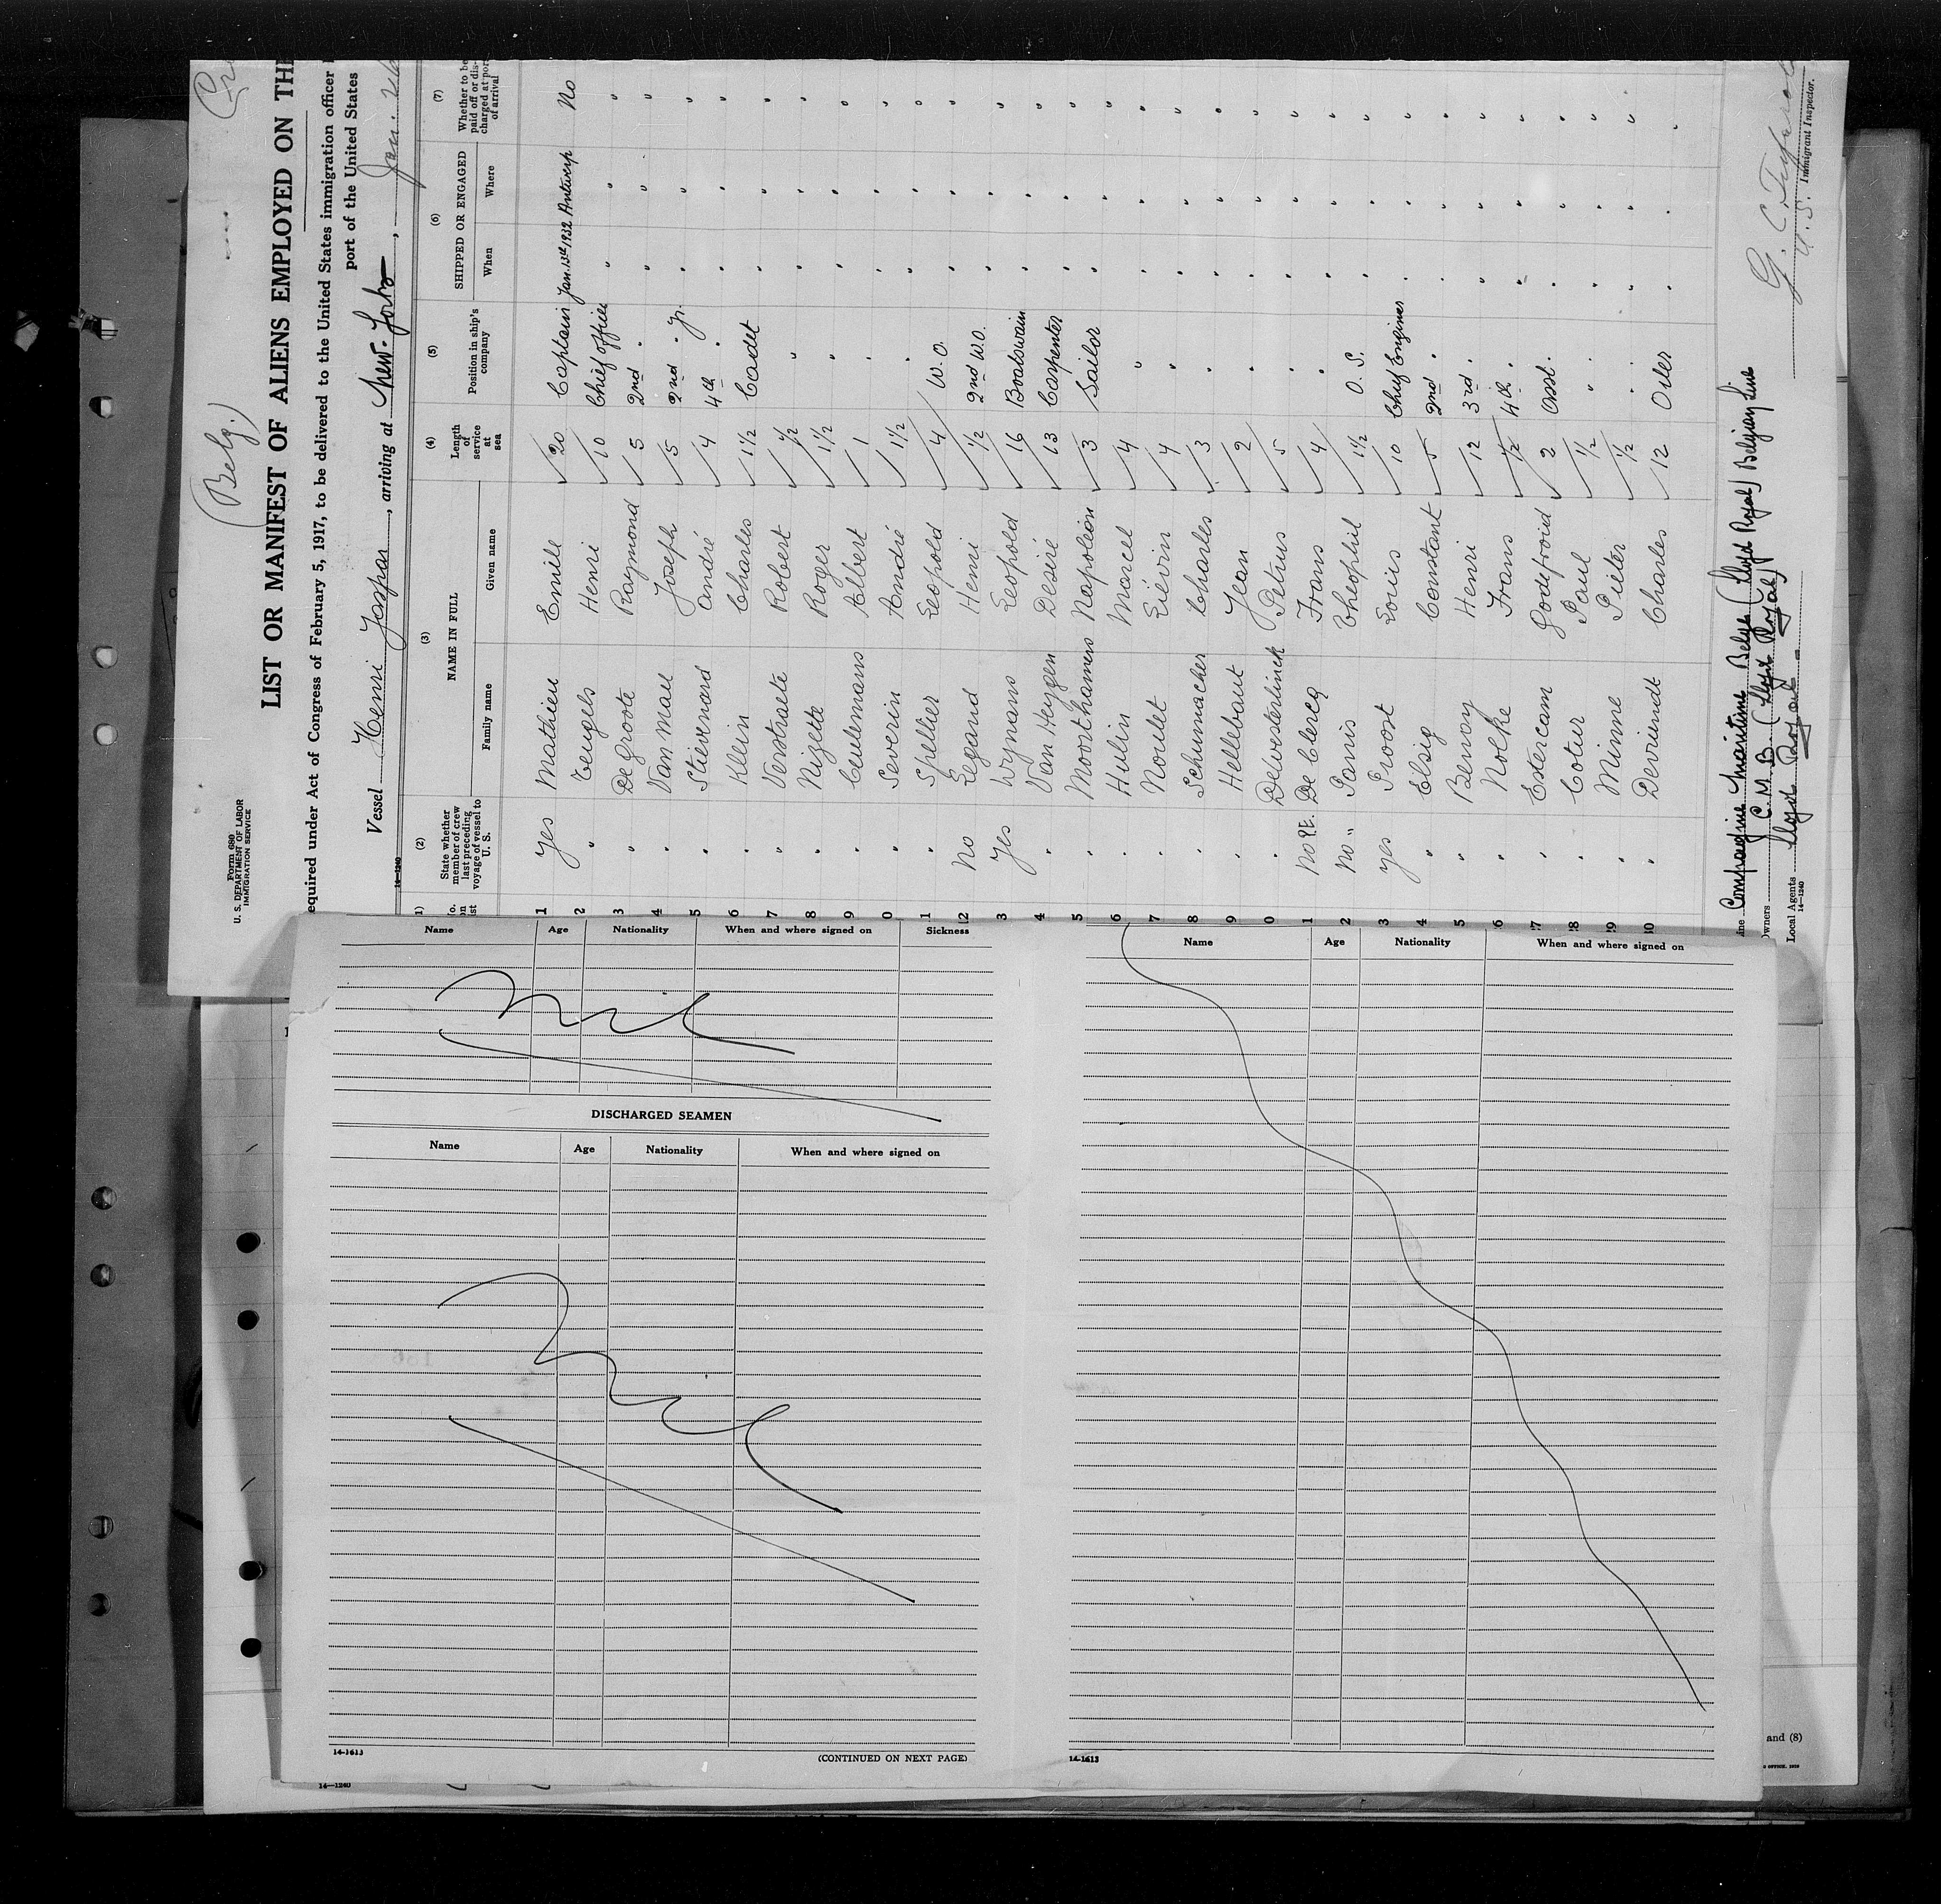 (Belg.)
Form 680
U. S. DEPARTMENT OF LABOR
IMMIGRATION SERVICE
LIST OR MANIFEST OF ALIENS EMPLOYED ON THE
equired under Act of Congress of February 5, 1917, to be delivered to the United States immigration officer
port of the United States
Vessel Henri Jaspar, arriving at New-York,
14—1240
(1) (2) (3) (4) (5) (6) (7)
State whether member of crew last preceding voyage of vessel to U. S.
NAME IN FULL
Family name Given name
Length of service at sea
Position in ship's company
SHIPPED OR ENGAGED
When Where
Whether to be paid off or discharged at port of arrival
1 Yes Mathieu Emile 20 Captain Jan. 13th 1932 Antwerp No
2 " Teugels Henri 10 Chief officer " " "
3 " De Groote Raymond 5 2nd " " " "
4 " Van Mall Joseph 5 2nd " Jr. " " "
5 " Stievenard André 4 4th " " " "
6 " Kllin Charles 1½ Cadet " " "
7 " Verstraete Robert ½ " " " "
8 " Nizette Roger 1½ " " " "
9 " Ceulemans Albert 1 " " " "
0 " Severin André 1½ " " " "
1 " Spellier Leopold 4 W.O. " " "
12 No Legand Henri ½ 2nd W.O. " " "
3 Yes Wynans Leopold 16 Boatswain " " "
4 " Van Heygen Desiré 13 Carpenter " " "
5 " Moorthamers Napoleon 3 Sailor " " "
6 " Hulin Marcel 4 " " " "
7 " Noulet Liévin 4 " " " "
8 " Schumacher Charles 3 " " " "
9 " Hellebaut Jean 2 " " " "
0 " Dewesterlinck Petrus 5 " " " "
1 No De Clercq Frans 4 " " " "
2 No " Paris Theophil 1½ O. S. " " "
3 yes Proost Louis 10 Chief Engineer " " "
4 " Elsig Constant 5 2nd " " " "
5 " Benoy Henri 12 3rd " " " "
6 " Nolke Frans ½ 4th " " " "
27 " Estercam Godefroid 2 Asst. " " "
28 " Cotur Paul 1½ " " " "
29 " Minne Pieter ½ " " " "
30 " Devriendt Charles 12 Oiler " " "
Line Compagnie Maritime Belge (Lloyd Royal) Belgian Line
Owners C. M. B. (Lloyd Royal)
Local Agents Lloyd Royal
14—1240
U. S. Immigrant Inspector.
Name Age Nationality When and where signed on Sickness
Nil
DISCHARGED SEAMEN
Name Age Nationality When and where signed on
Nil
14-1613
(CONTINUED ON NEXT PAGE)
14—1240
Name Age Nationality When and where signed on
14-1613
and (8)